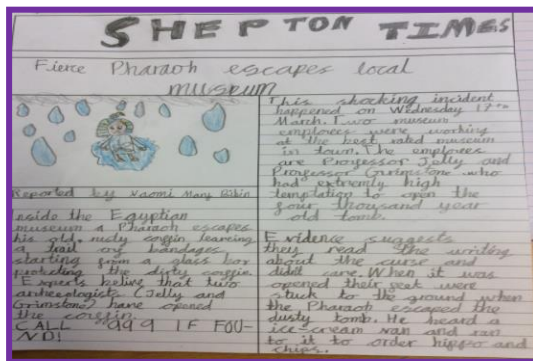 SHEPTON TIMES
Fierce Pharaoh escapes local
museum
Reported by Naomi Mary
nside the Egyptian
museum a Pharaoh escapes
his old, rusty coffin leaveing
a trail of bandages
starting from a glass box
protecting the dirty coffin.
Experts belive that two
archeologists (Jelly and
Grimstone) have opened
the coffin.
CALL 999 IF FOU-
ND!
This shocking incident
happened on Wednesday 17th
March. Two museum
employees were working
at the best rated museum
in town. The employees
are Proffesor Jelly and
Proffesor Grimstone who
had extremly high
temptation to open the
four thousand year
old tomb.
Evidence suggests
they read the writing
about the curse and
didn't care. When it was
opened their feet were
stuck to the ground when
the Pharaoh escaped the
dusty tomb. He heard a
ice-cream van and ran
to it to order hippo and
chips.